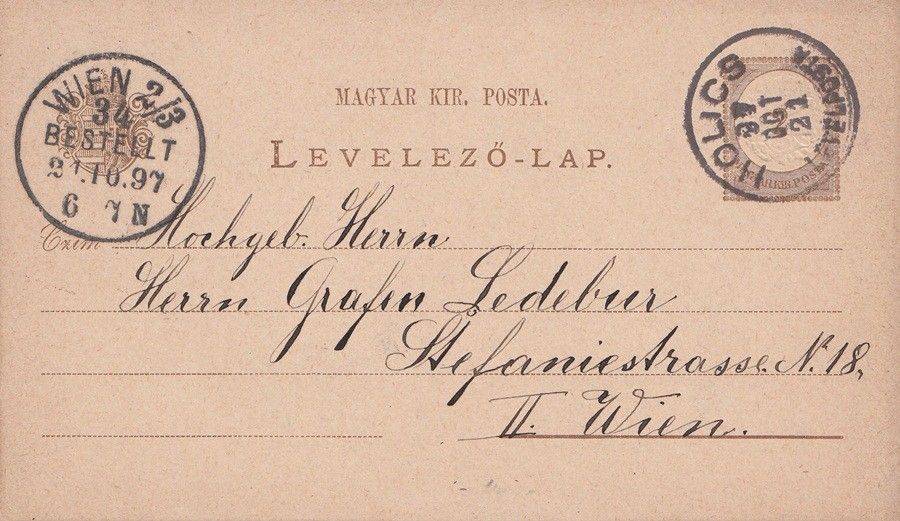 MAGYAR KIR. POSTA.
LEVELEZŐ-LAP.
WIEN 2/3
BESTELLT
21.10.97
6 7 N
HOLICS
97
OCT
21
MAGY.KIR.POSTA
Czím
Hochgeb. Herrn
Herrn Grafen Ledebur
Stefaniestrasse. Nr 18,
II. Wien.